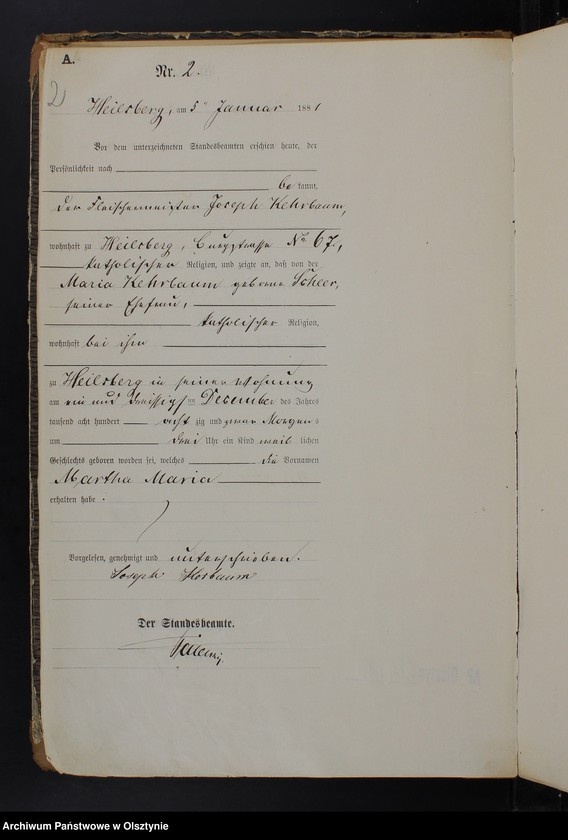 A.
Nr. 2.
2
Heilsberg, am 5ⁿ Januar 1881
Vor dem unterzeichneten Standesbeamten erschien heute, der
Persönlichkeit nach
be kannt,
der Fleischermeister Joseph Kehrbaum,
wohnhaft zu Heilsberg, Burgstrasse No 67.,
katholischer Religion, und zeigte an, daß von der
Maria Kehrbaum geborne Schler,
seiner Ehefrau,
katholischer Religion,
wohnhaft bei ihm
zu Heilsberg in seiner Wohnung
am ein und dreissigsten December des Jahres
tausend acht hundert acht zig und zwar Morgens
um drei Uhr ein Kind weib lichen
Geschlechts geboren worden sei, welches die Vornamen
Martha Maria
erhalten habe.
Vorgelesen, genehmigt und unterschrieben.
Joseph Korbaum
Der Standesbeamte.
Archiwum Państwowe w Olsztynie